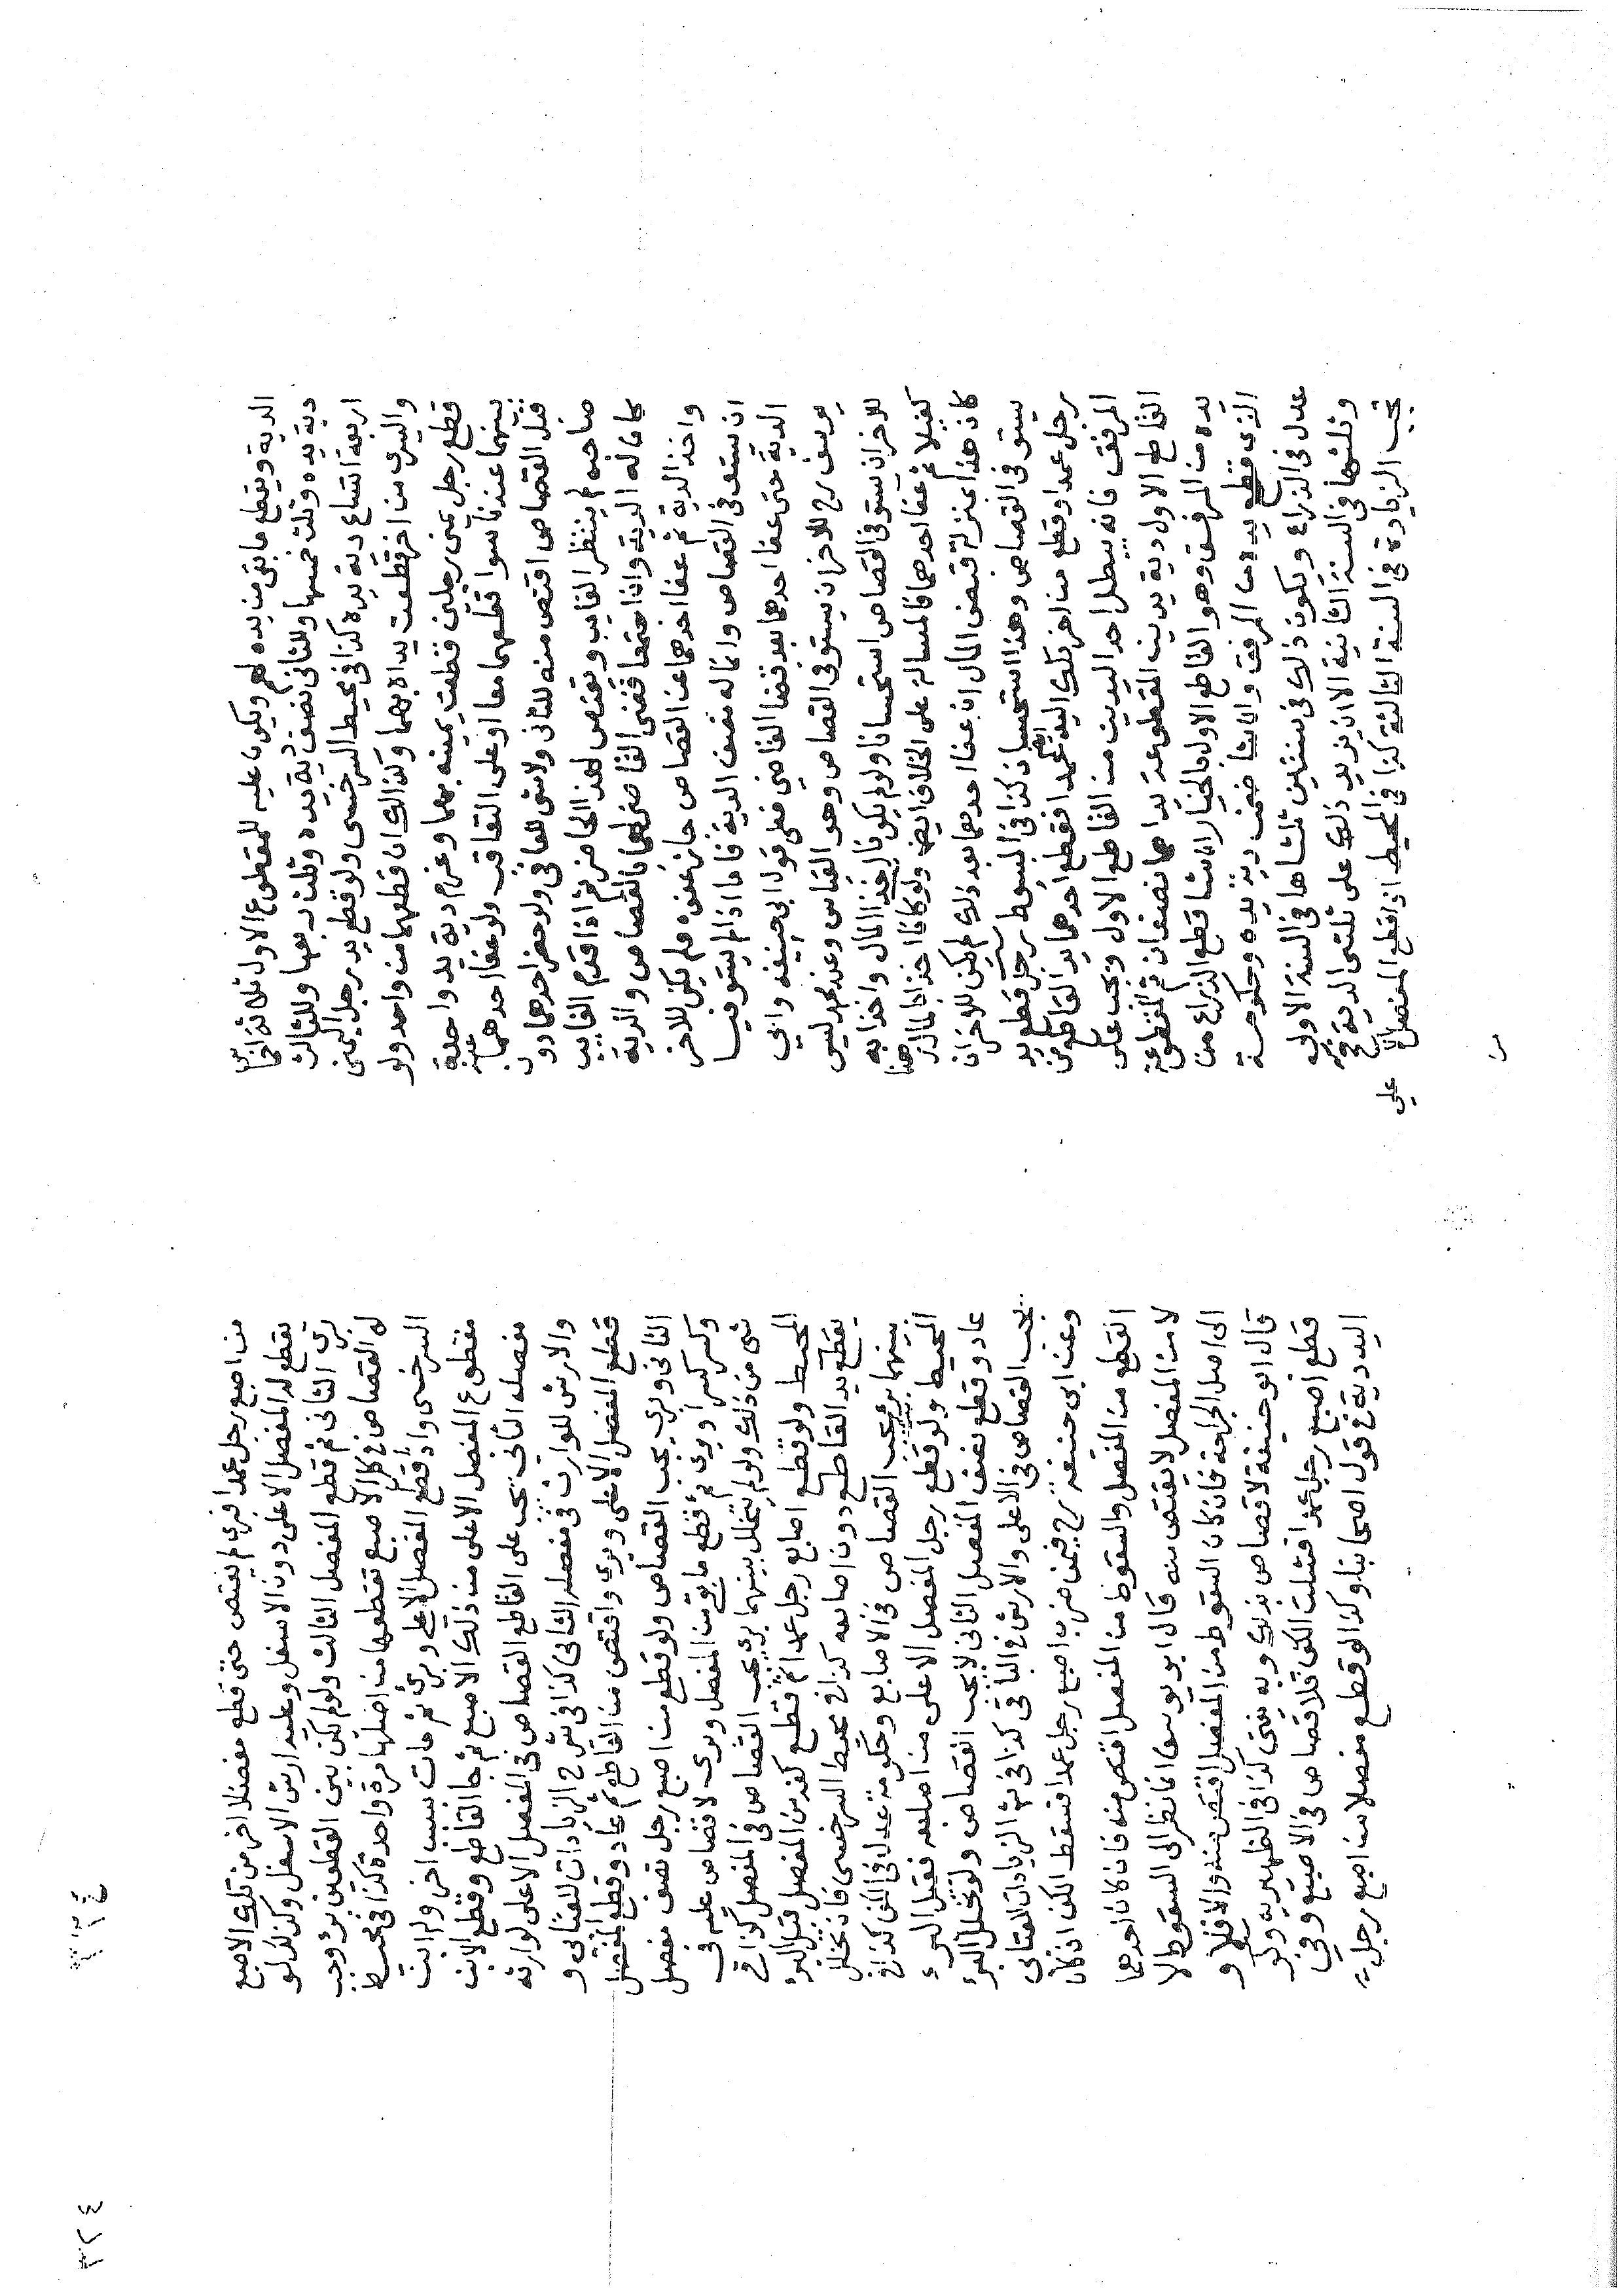 الدية ويقطع ما بقى من يده لهم ويكون عليه للمقطوع الاول ثلاثة اخماس
دية يده وثلث خمسها وللثانى نصف دية يده وثلث ربعها وللثالث
اربعة اتساع دية يده كذا فى محيط السرخسى ولو قطع يد رجل اليمنى
واليسرى من اخر قطعت يداه بهما وكذا لك ان قطعهما من واحد ولو
قطع رجل يمنى رجلين قطعت يمينه بهما وغرم دية يد واحدة
بينهما عندنا سوا قطعهما معا او على التعاقب ولو عفا احدهما
قبل القصاص اقتص منه للثانى ولا شى للعافى ولو حضر احدهما دون
صاحبه لم ينتظر الغايب ويقتص لهذا الحاضر ثم اذا قدم الغايب
كان له الدية واذا اجتمعا فقضى القاضى لهما بالقصاص والدية
واخذ الدية ثم عفا احدهما عن القصاص جاز عفوه ولم يكن للاخر
ان يستوفى القصاص وانما له نصف الدية فاما اذا لم يستوفيا
الدية حتى عفا احدهما بعد قضا القاضى فعلى قول ابى حنيفه وابى
يوسف رح للاخر ان يستوفى القصاص وهو القياس وعند محمد ليس
للاخر ان يستوفى القصاص استحسانا ولو لم يكونا اخذا المال واخذا به
كفيلا ثم عفا احدهما فالمسالة على الخلاف ايض ولو كانا اخذا بالمال رهنا
كان هذا بمنزلة قبض المال ان عفا احدهما بعد ذلك لم يكن للاخر ان
يستوفى القصاص وهذا استحسان كذا فى المبسوط رجل قطع يد
رجل عمدا وقطع من اخر تلك اليد عمدا فقطع احدهما يد القاطع من
المرفق فانه يبطل احد اليدين من القاطع الاول ويجب على
القاطع الاول دية يد بين المقطوعة يداهما نصفان ثم المقطوعة
يده من المرفق وهو القاطع الاول بالخيار ان شا قطع الذراع من
الذى قطع يده من المرفق وان شا ضمنه دية يده وحكومة
عدل فى الذراع ويكون ذلك فى سنتين ثلثاها فى السنة الاولى
وثلثها فى السنة الثانية الا ان يزيد ذلك على ثلثى الدية فح
تجب الزيادة فى السنة الثالثة كذا فى المحيط اذا قطع المفصل الا
على
من اصبع رجل عمدا فبرى ولم يقتص حتى قطع مفصلا اخر من تلك الاصبع
يقطع له المفصل الاعلى دون الاسفل وعليه ارش الاسفل وكذلك لو
برى الثانى ثم قطع المفصل الثالث ولو لم يكن بين القطعين برؤ وجب
له القصاص فى كل الاصبع تقطعها من اصلها مرة واحدة كذا فى محيط
السرخسى واذا قطع المفصل الاعلى وبرئ ثم مات بسبب اخر ولم ابنت
مقطوع المفصل الاعلى من ذلك الاصبع ثم جا القاطع وقطع الابن
مفصله الثانى يجب على القاطع القصاص فى المفصل الاعلى لوارثه
والارش للوارث فى مفصله الثانى كذا فى شرح الزيادات للعتابى و
قطع المفصل الاعلى وبرى واقتص من القاطع ثم عاد وقطع المفصل
الثانى وبرى يجب القصاص ولو قطع من اصبع رجل نصف مفصل
وكسر كسرا وبرى ثم قطع ما بقى من المفصل وبرى لا قصاص عليه فى
شى من ذلك ولو لم يتخلل بينهما برى يجب القصاص فى المفصل كذا فى
المحيط ولو قطع اصابع رجل عمدا ثم قطع كفه من المفصل قبل البرء
يقطع يد القاطع دون اصابعه كذا فى محيط السرخسى فان تخلل
بينهما برؤ يجب القصاص فى الاصابع وحكومة عدل فى الكف كذا فى
المحيط ولو قطع رجل المفصل الاعلى من اصابعه فقبل البرء
عاد وقطع نصف المفصل الثانى لا يجب القصاص ولو تخلل البرء
يجب القصاص فى الاعلى والارش فى الباقى كذا فى شرح الزيادات للعتابى
وعن ابى حنيفة رح فيمن ضرب اصبع رجل عمدا فسقط الكف ان كان
القطع من المفصل والسقوط من المفصل اقتص منه فان كان احدهما
لا من المفصل لا يقتص منه قال ابو يوسف انما انظر الى السقوط لا
الى اصل الجراحة فان كان السقوط من المفصل اقتص منه والا فلا و
قال ابو حنيفة لا قصاص فى ذلك وبه يفتى كذا فى الظهيريه ولو
قطع اصبع رجل عمدا فشلت الكف فلا قصاص فى الاصبع وفى
اليد دية فى قول اصحابنا وكذا لو قطع مفصلا من اصبع رجل
٣٢٤